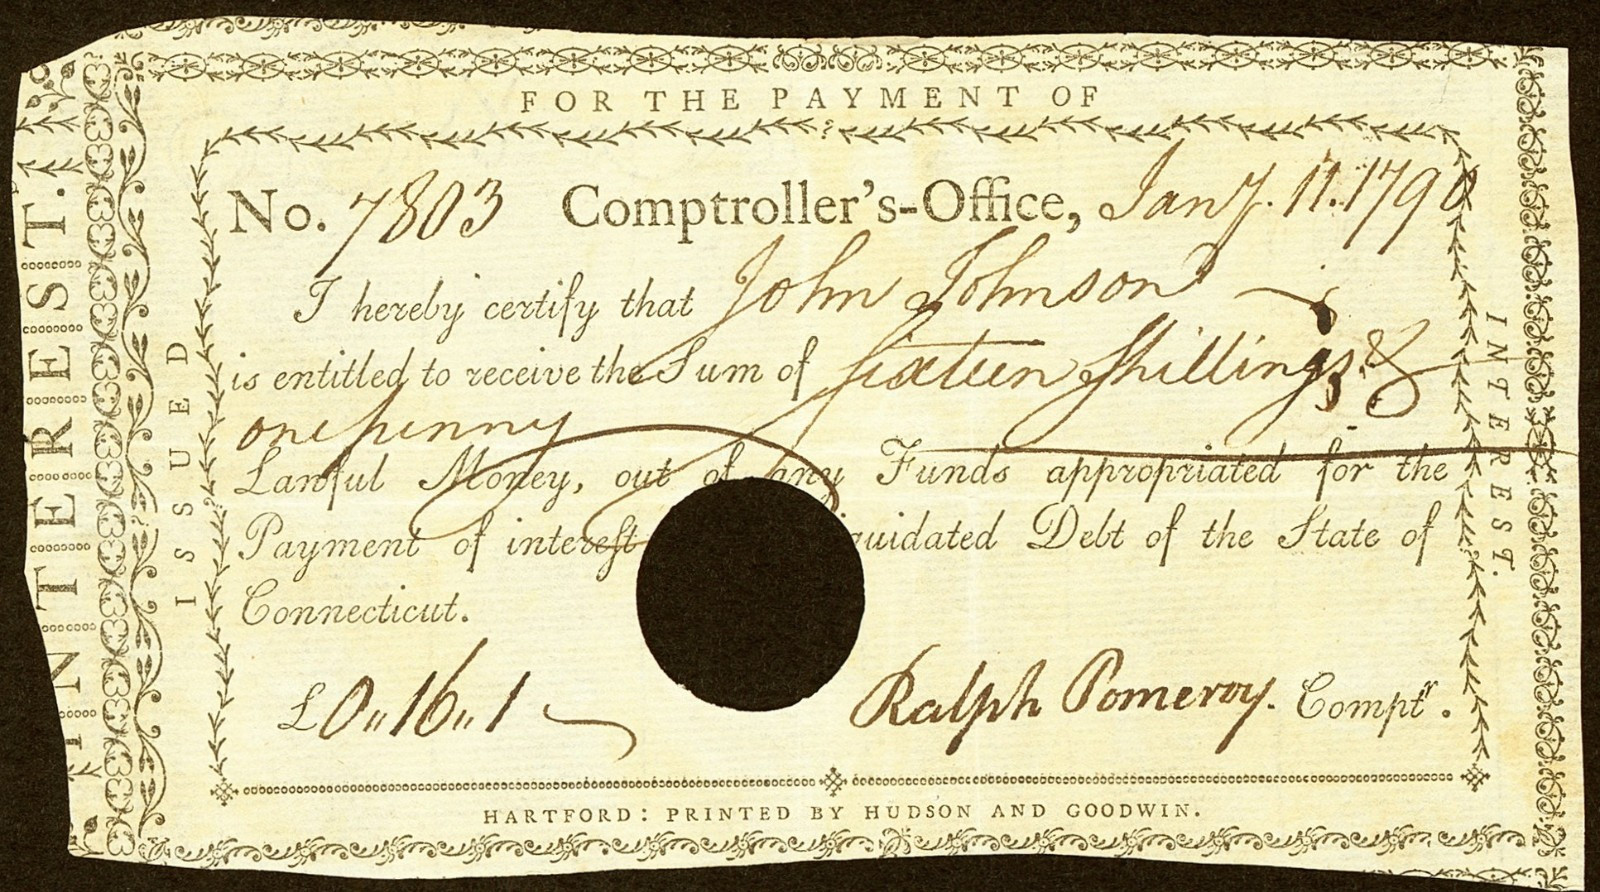 FOR THE PAYMENT OF
No. 7803 Comptroller's-Office, Jany. 11. 1790
I hereby certify that John Johnson
is entitled to receive the Sum of Sixteen Shillings &
one penny
Lawful Money, out of any Funds appropriated for the
Payment of interest quidated Debt of the State of
Connecticut.
£0,,16,,1
Ralph Pomeroy. Comptr.
HARTFORD: PRINTED BY HUDSON AND GOODWIN.
ISSUED
INTEREST.
INTEREST.